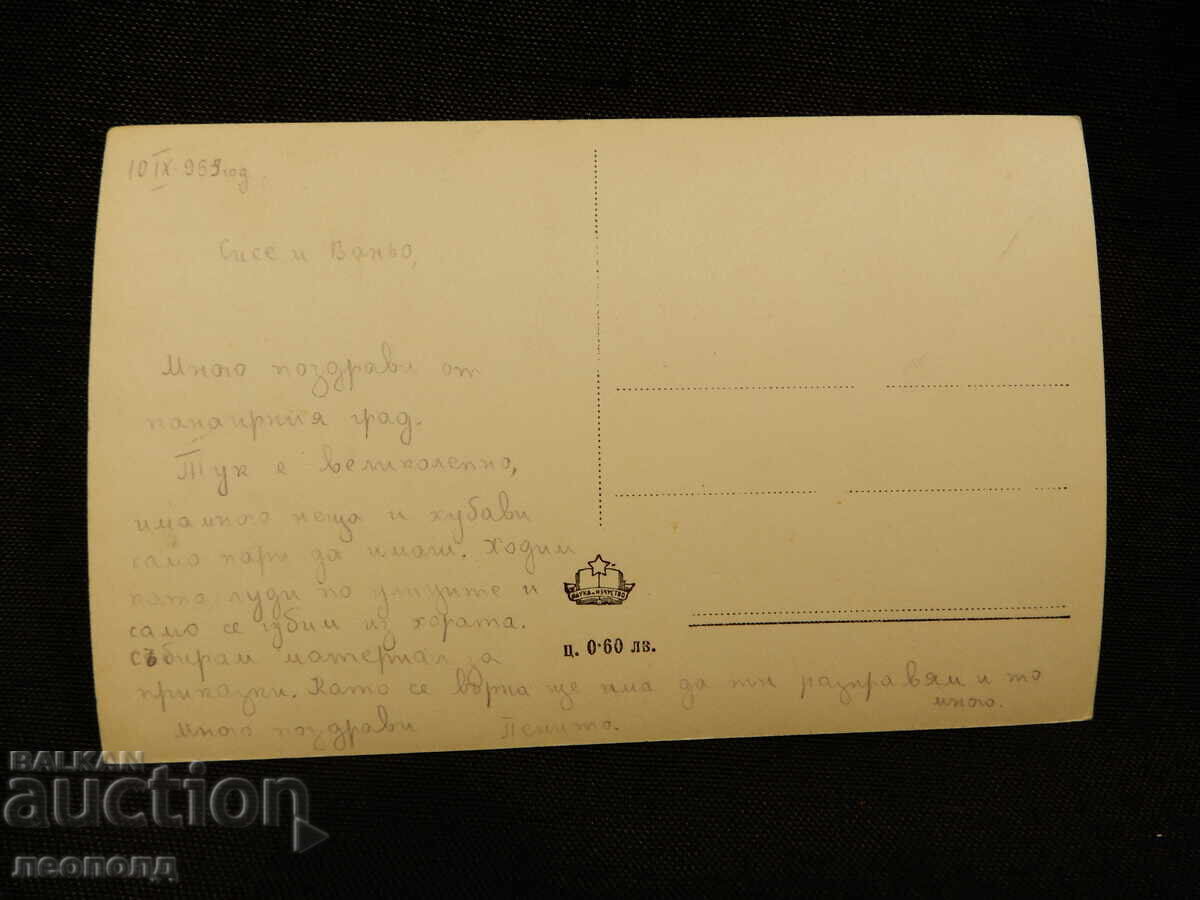 10 IX. 969 год.
Сисе и Ваньо,
Много поздрави от
панаирния град.
Тук е великолепно,
има много неща и хубави
само пари да имаш. Ходим
като луди по улиците и
само се губим из хората.
Събирам материал за
приказки. Като се върна ще има да ти разправям и то
много.
Много поздрави Пепито.
НАУКА И ИЗКУСТВО
ц. 0·60 лв.
BALKAN
auction
леополд